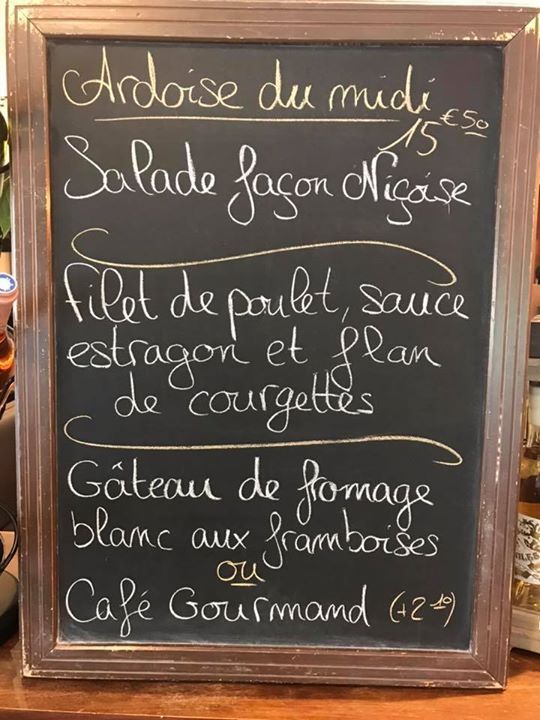 Ardoise du midi
15 €50
Salade façon Niçoise
Filet de poulet, sauce
estragon et flan
de courgettes
Gâteau de fromage
blanc aux framboises
ou
Café Gourmand (+2 10)